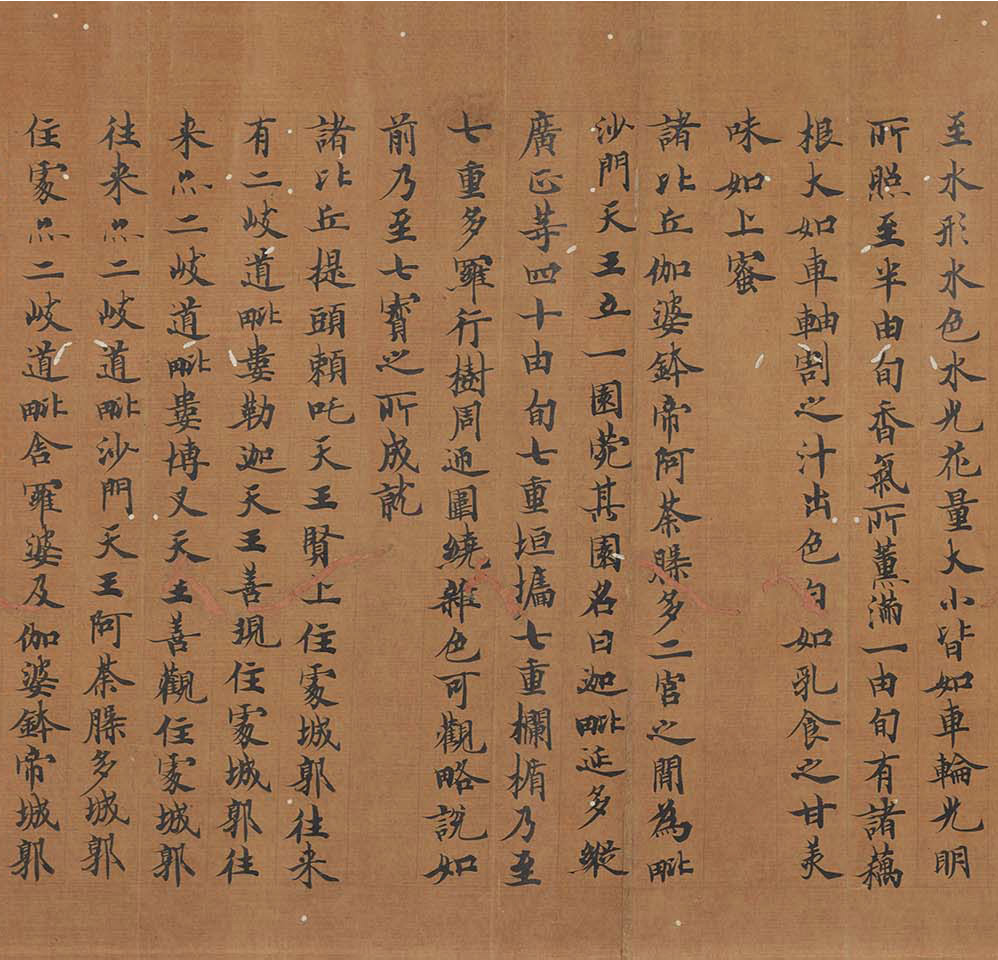 至水形水色水光花量大小皆如車輪光明
所照至半由旬香氣所薰滿一由旬有諸藕
根大如車軸割之汁出色白如乳食之甘美
味如上蜜
諸比丘伽婆鉢帝阿荼槃多二宮之間為毗
沙門天王立一園苑其園名曰迦毗延多縱
廣正等四十由旬七重垣牆七重欄楯乃至
七重多羅行樹周迊圍繞雜色可觀略說如
前乃至七寶之所成就
諸比丘提頭頼吒天王賢上住處城郭往来
有二岐道毗婁勒迦天王善現住處城郭往
来亦二岐道毗婁博叉天王善觀住處城郭
往来亦二岐道毗沙門天王阿荼槃多城郭
住處亦二岐道毗舍羅婆及伽婆鉢帝城郭